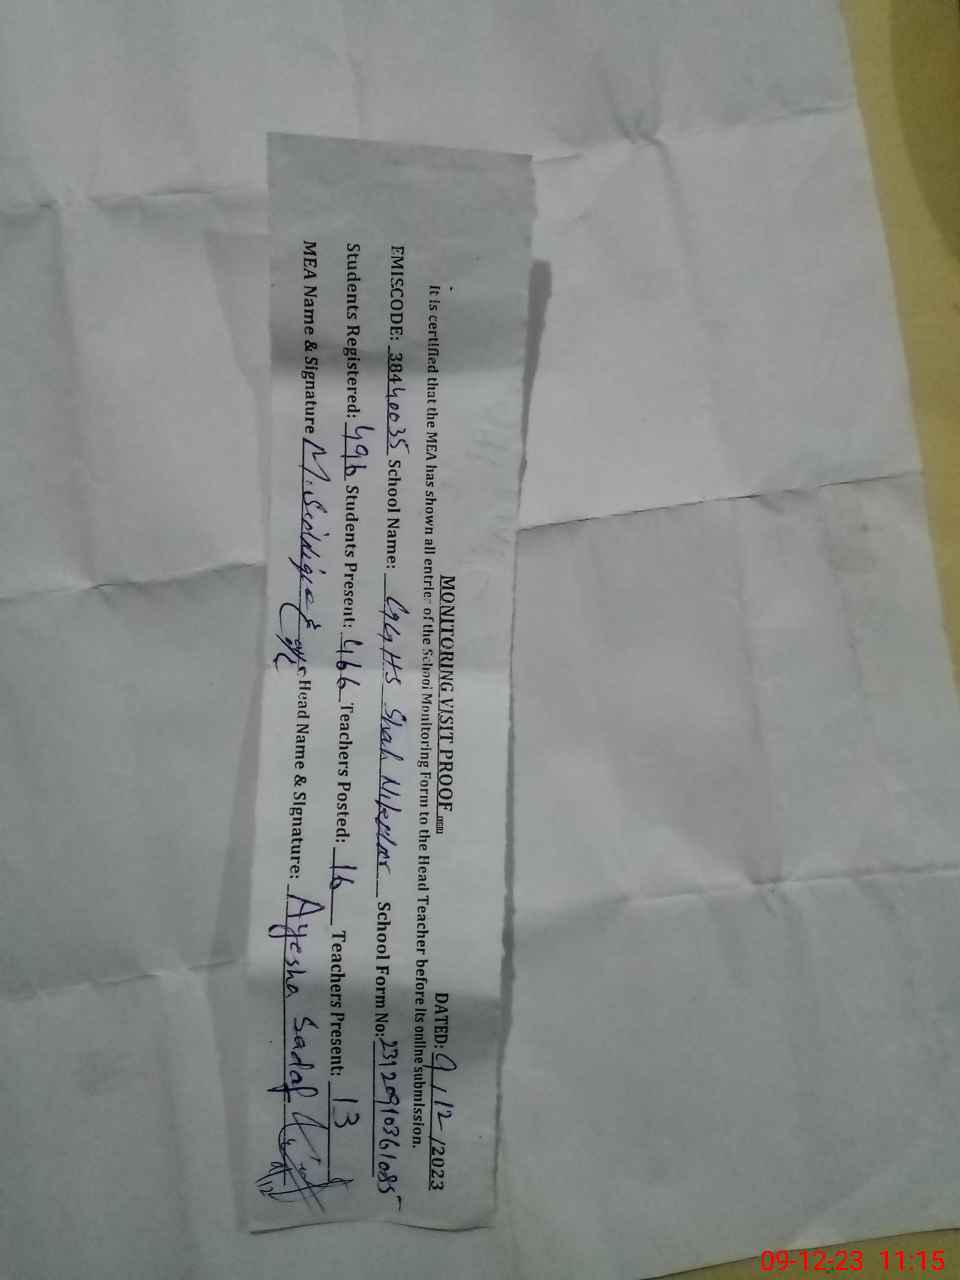 MONITORING VISIT PROOF DATED: 9/12/2023
It is certified that the MEA has shown all entries of the School Monitoring Form to the Head Teacher before its online submission.
EMISCODE: 38440035 School Name: GGHS Shah Nikdur School Form No: 23120910361085
Students Registered: 496 Students Present: 466 Teachers Posted: 16 Teachers Present: 13
MEA Name & Signature M. Siddique Head Name & Signature: Ayesha Sadaf
09-12-23 11:15